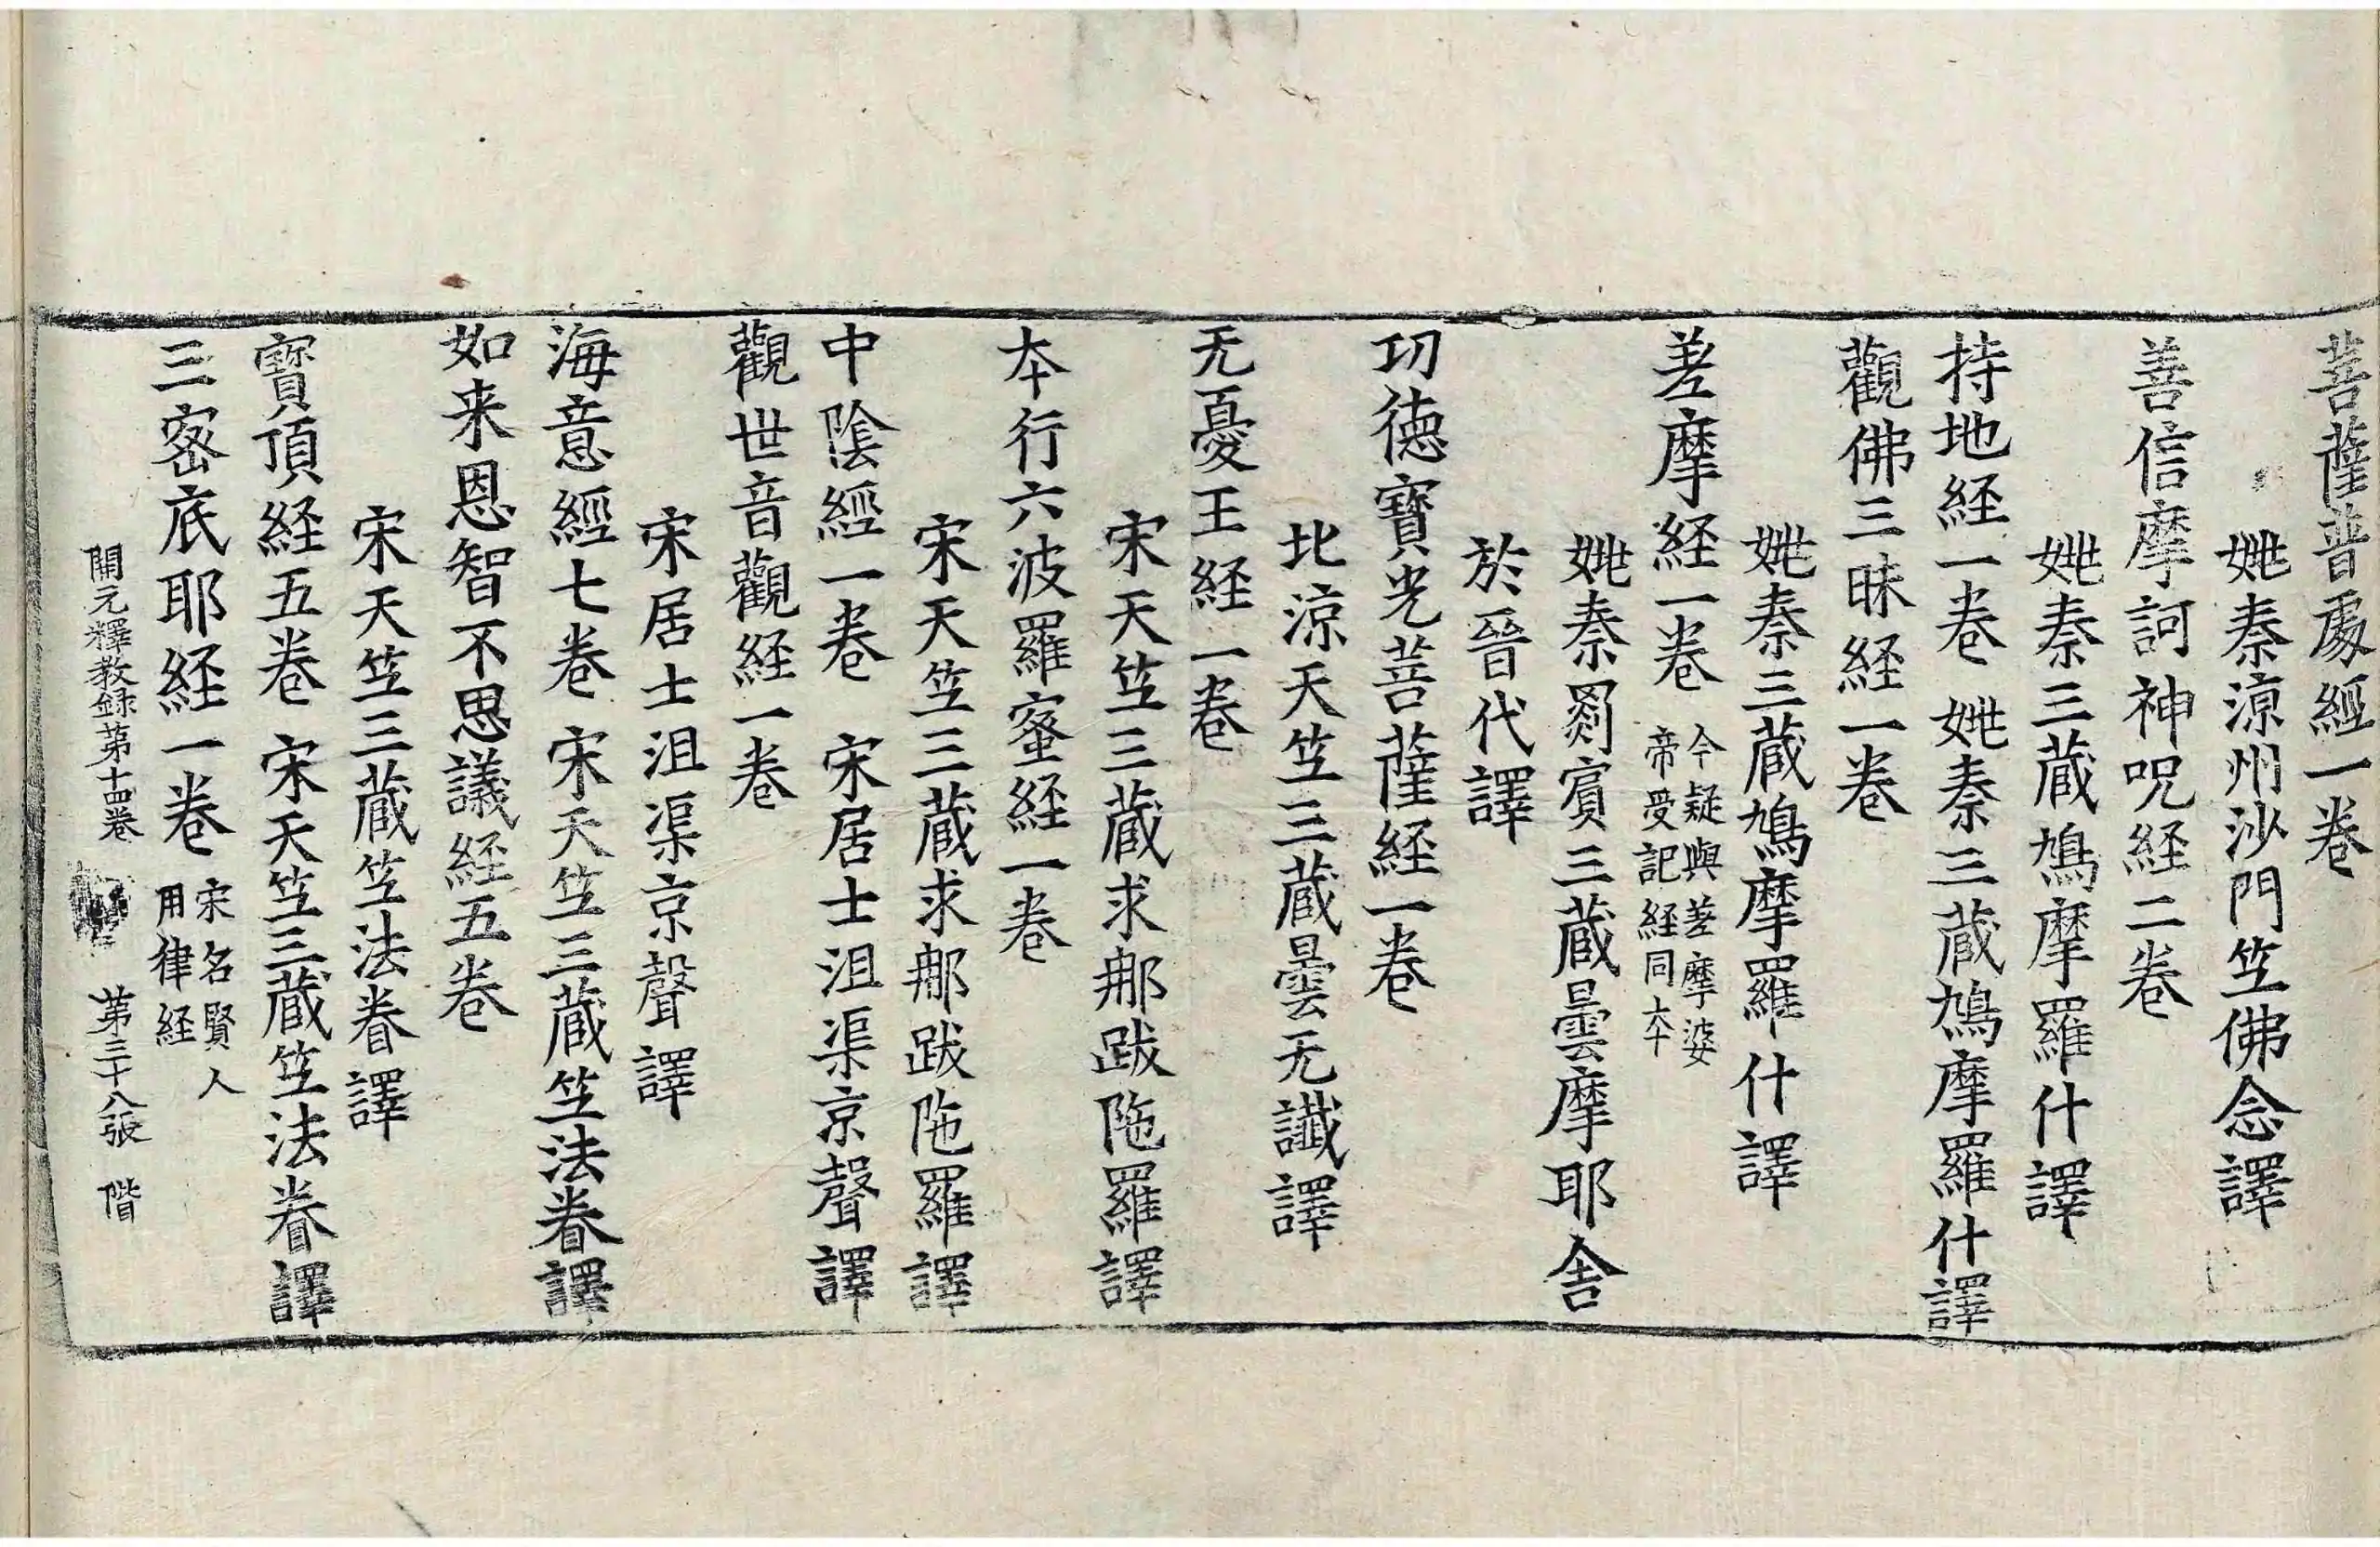 菩薩普處經一卷
姚秦涼州沙門竺佛念譯
善信摩訶神呪経二卷
姚秦三蔵鳩摩羅什譯
持地経一卷 姚秦三蔵鳩摩羅什譯
觀佛三昧経一卷
姚秦三蔵鳩摩羅什譯
差摩経一卷 今疑與差摩婆
帝受記経同夲
姚秦罽賔三蔵曇摩耶舎
於晉代譯
功德寶光菩薩経一卷
北涼天竺三蔵曇无讖譯
无憂王経一卷
宋天竺三蔵求那跋陁羅譯
夲行六波羅蜜経一卷
宋天竺三蔵求那跋陁羅譯
中陰經一卷 宋居士沮渠京聲譯
觀世音觀経一卷
宋居士沮渠京聲譯
海意經七卷 宋天竺三蔵竺法眷譯
如来恩智不思議経五卷
宋天竺三蔵竺法眷譯
寳頂経五卷 宋天竺三蔵竺法眷譯
三密底耶経一卷 宋名賢人
用律経
開元釋教録第十四卷 第三十八張 階